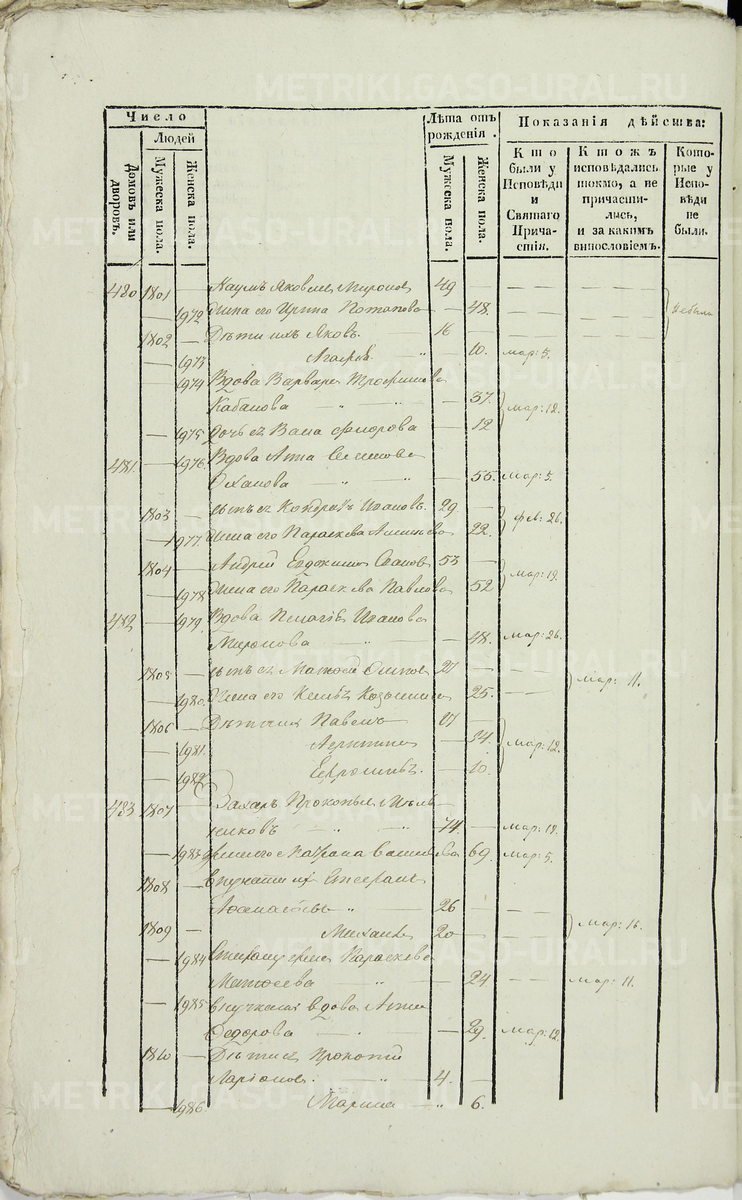 Число
Людей
Домовъ или дворовъ.
Мужеска пола.
Женска пола.
Лѣта отъ рожденія.
Мужеска пола.
Женска пола.
Показанія дѣйства:
Кто были у Исповѣди и Святаго Причастія.
Ктожъ исповѣдались токмо, а не причастились, и за какимъ винословіемъ.
Которые у Исповѣди не были.
480 1801 — Наумъ Яковлев Миронов 49 — — — —
— 1972 жена его Ирина Потапова — 48. — — небыли
1802 — Дѣти ихъ Яковъ. 16 — — —
— 1973 Агафья " — 10. мар: 5.
— 1974 Вдова Варвара Трофимова
Кабанова — " — " — 37. мар: 12.
— 1975 дочь ея Васса Федорова — 12
481 — 1976 Вдова Анна Семенова
" " — 55. мар: 5.
1803 — сынъ ея Кондратъ Ивановъ. 29 — фев: 26.
— 1977 жена его Параскева — 22.
1804 — Андрей Евдокимов 53 — мар: 19.
— 1978 жена его Параскева Павлова 52
482 — 1979 Вдова Пелагія Иванова
Миронова — " — 48. мар: 26.
1805 — сынъ ея Матвей Осипов 27 — — — мар: 11.
— 1980 Жена его Козмина 25. — —
1806 — Дѣти ея Павелъ 17 —
— 1981. — 14. мар: 12.
— 1982 Ефросинья. — 10.
483 1807 — Захаръ Прокопьев Мель
никовъ — " " 74. — мар: 19.
— 1983 жена его 69. мар: 5.
1808 — внучата их
" 26 — — —
1809 — Михаил 20 — — — мар: 15.
— 1984 жена Параскева
Матвеева — " — 24 — — мар: 11.
— 1985 вдова Анна
Федорова — — 29. мар: 12.
1810 — Дѣти ея Прокопий
Ларіонов. " " 4. —
— 1986 Марина — " 6.
METRIKI.GASO-URAL.RU